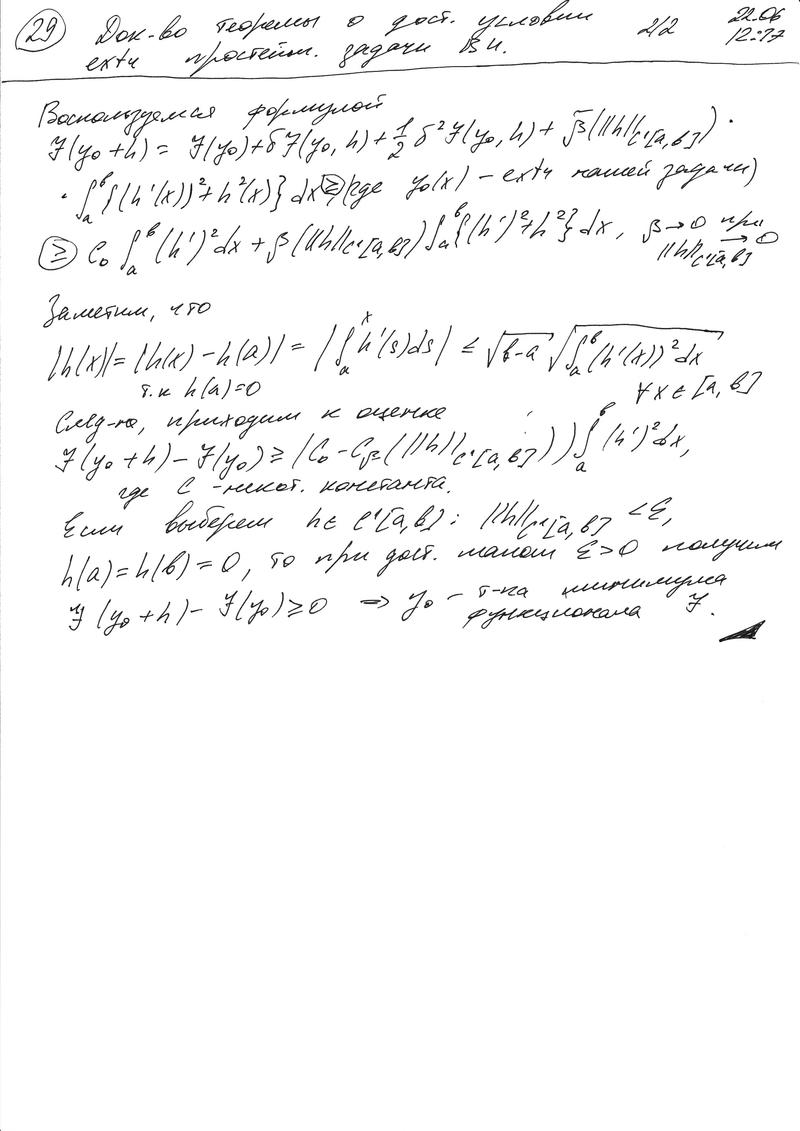 29 Док-во теоремы о дост. условии 2/2 22.06
extr простейш. задачи ВИ. 12:17
Воспользуемся формулой
J(y₀+h) = J(y₀)+δJ(y₀,h)+½δ²J(y₀,h)+β̄(||h||_{C¹[a,b]})·
·∫ₐᵇ{(h'(x))²+h²(x)}dx ≥ (где y₀(x) – extr нашей задачи)
≥ C₀∫ₐᵇ(h')²dx+β(||h||_{C¹[a,b]})∫ₐᵇ{(h')²+h²}dx, β→0 при
||h||_{C¹[a,b]}→0
Заметим, что
|h(x)|=|h(x)-h(a)|=|∫ₐˣh'(s)ds| ≤ √(b-a) √(∫ₐᵇ(h'(x))²dx)
т.к h(a)=0 ∀x∈[a,b]
След-но, приходим к оценке
J(y₀+h)-J(y₀)≥(C₀-Cβ(||h||_{C¹[a,b]}))∫ₐᵇ(h')²dx,
где C -некот. константа.
Если выберем h∈C¹[a,b]: ||h||_{C¹[a,b]}<ε,
h(a)=h(b)=0, то при дост. малом ε>0 получим
J(y₀+h)-J(y₀)≥0 ⇒ y₀ – т-ка минимума
функционала J.